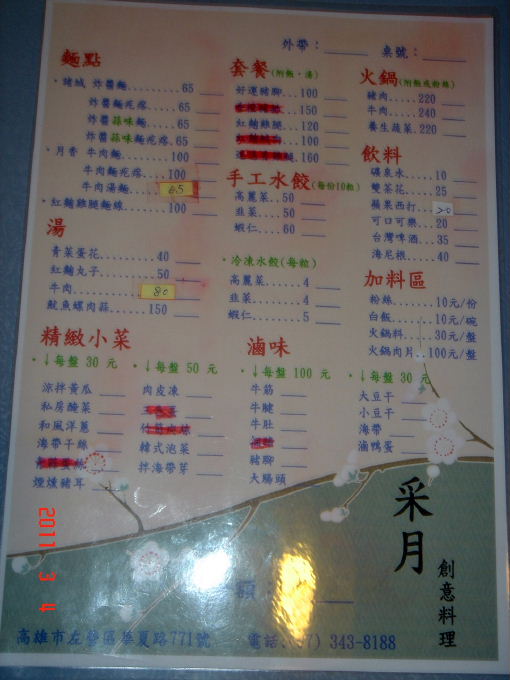 外帶：
桌號：
麵點
・諸城 炸醬麵.........65
炸醬麵疙瘩.....65
炸醬蒜味麵.....65
炸醬蒜味麵疙瘩.65
・月香 牛肉麵........100
牛肉麵疙瘩....100
牛肉湯麵.... 65
・紅麴雞腿麵線........100
湯
青菜蛋花.........40
紅麴丸子.........50
牛肉............. 80
魷魚螺肉蒜......150
套餐(附飯，湯)
好運豬腳...100
...150
紅麴雞腿...120
...100
.160
手工水餃(每份10粒)
高麗菜..50
韭菜....50
蝦仁....60
・冷凍水餃(每粒)
高麗菜......4
韭菜........4
蝦仁........5
火鍋(附飯或粉絲)
豬肉....220
牛肉....240
養生蔬菜.220
飲料
礦泉水....10
雙茶花....25
蘋果西打.. 30
可口可樂...20
台灣啤酒...35
海尼根.....40
加料區
粉絲......10元/份
白飯......10元/碗
火鍋料....30元/盤
火鍋肉片..100元/盤
精緻小菜
・↓每盤 30 元
涼拌黃瓜
私房醃菜
和風洋蔥
海帶干絲
煙燻豬耳
・↓每盤 50 元
肉皮凍
韓式泡菜
拌海帶芽
滷味
・↓每盤 100 元
牛筋
牛腱
牛肚
豬腳
大腸頭
・↓每盤 30 元
大豆干
小豆干
海帶
滷鴨蛋
采月
創意料理
額
高雄市左營區華夏路771號
電話:(07) 343-8188
2011 3 4